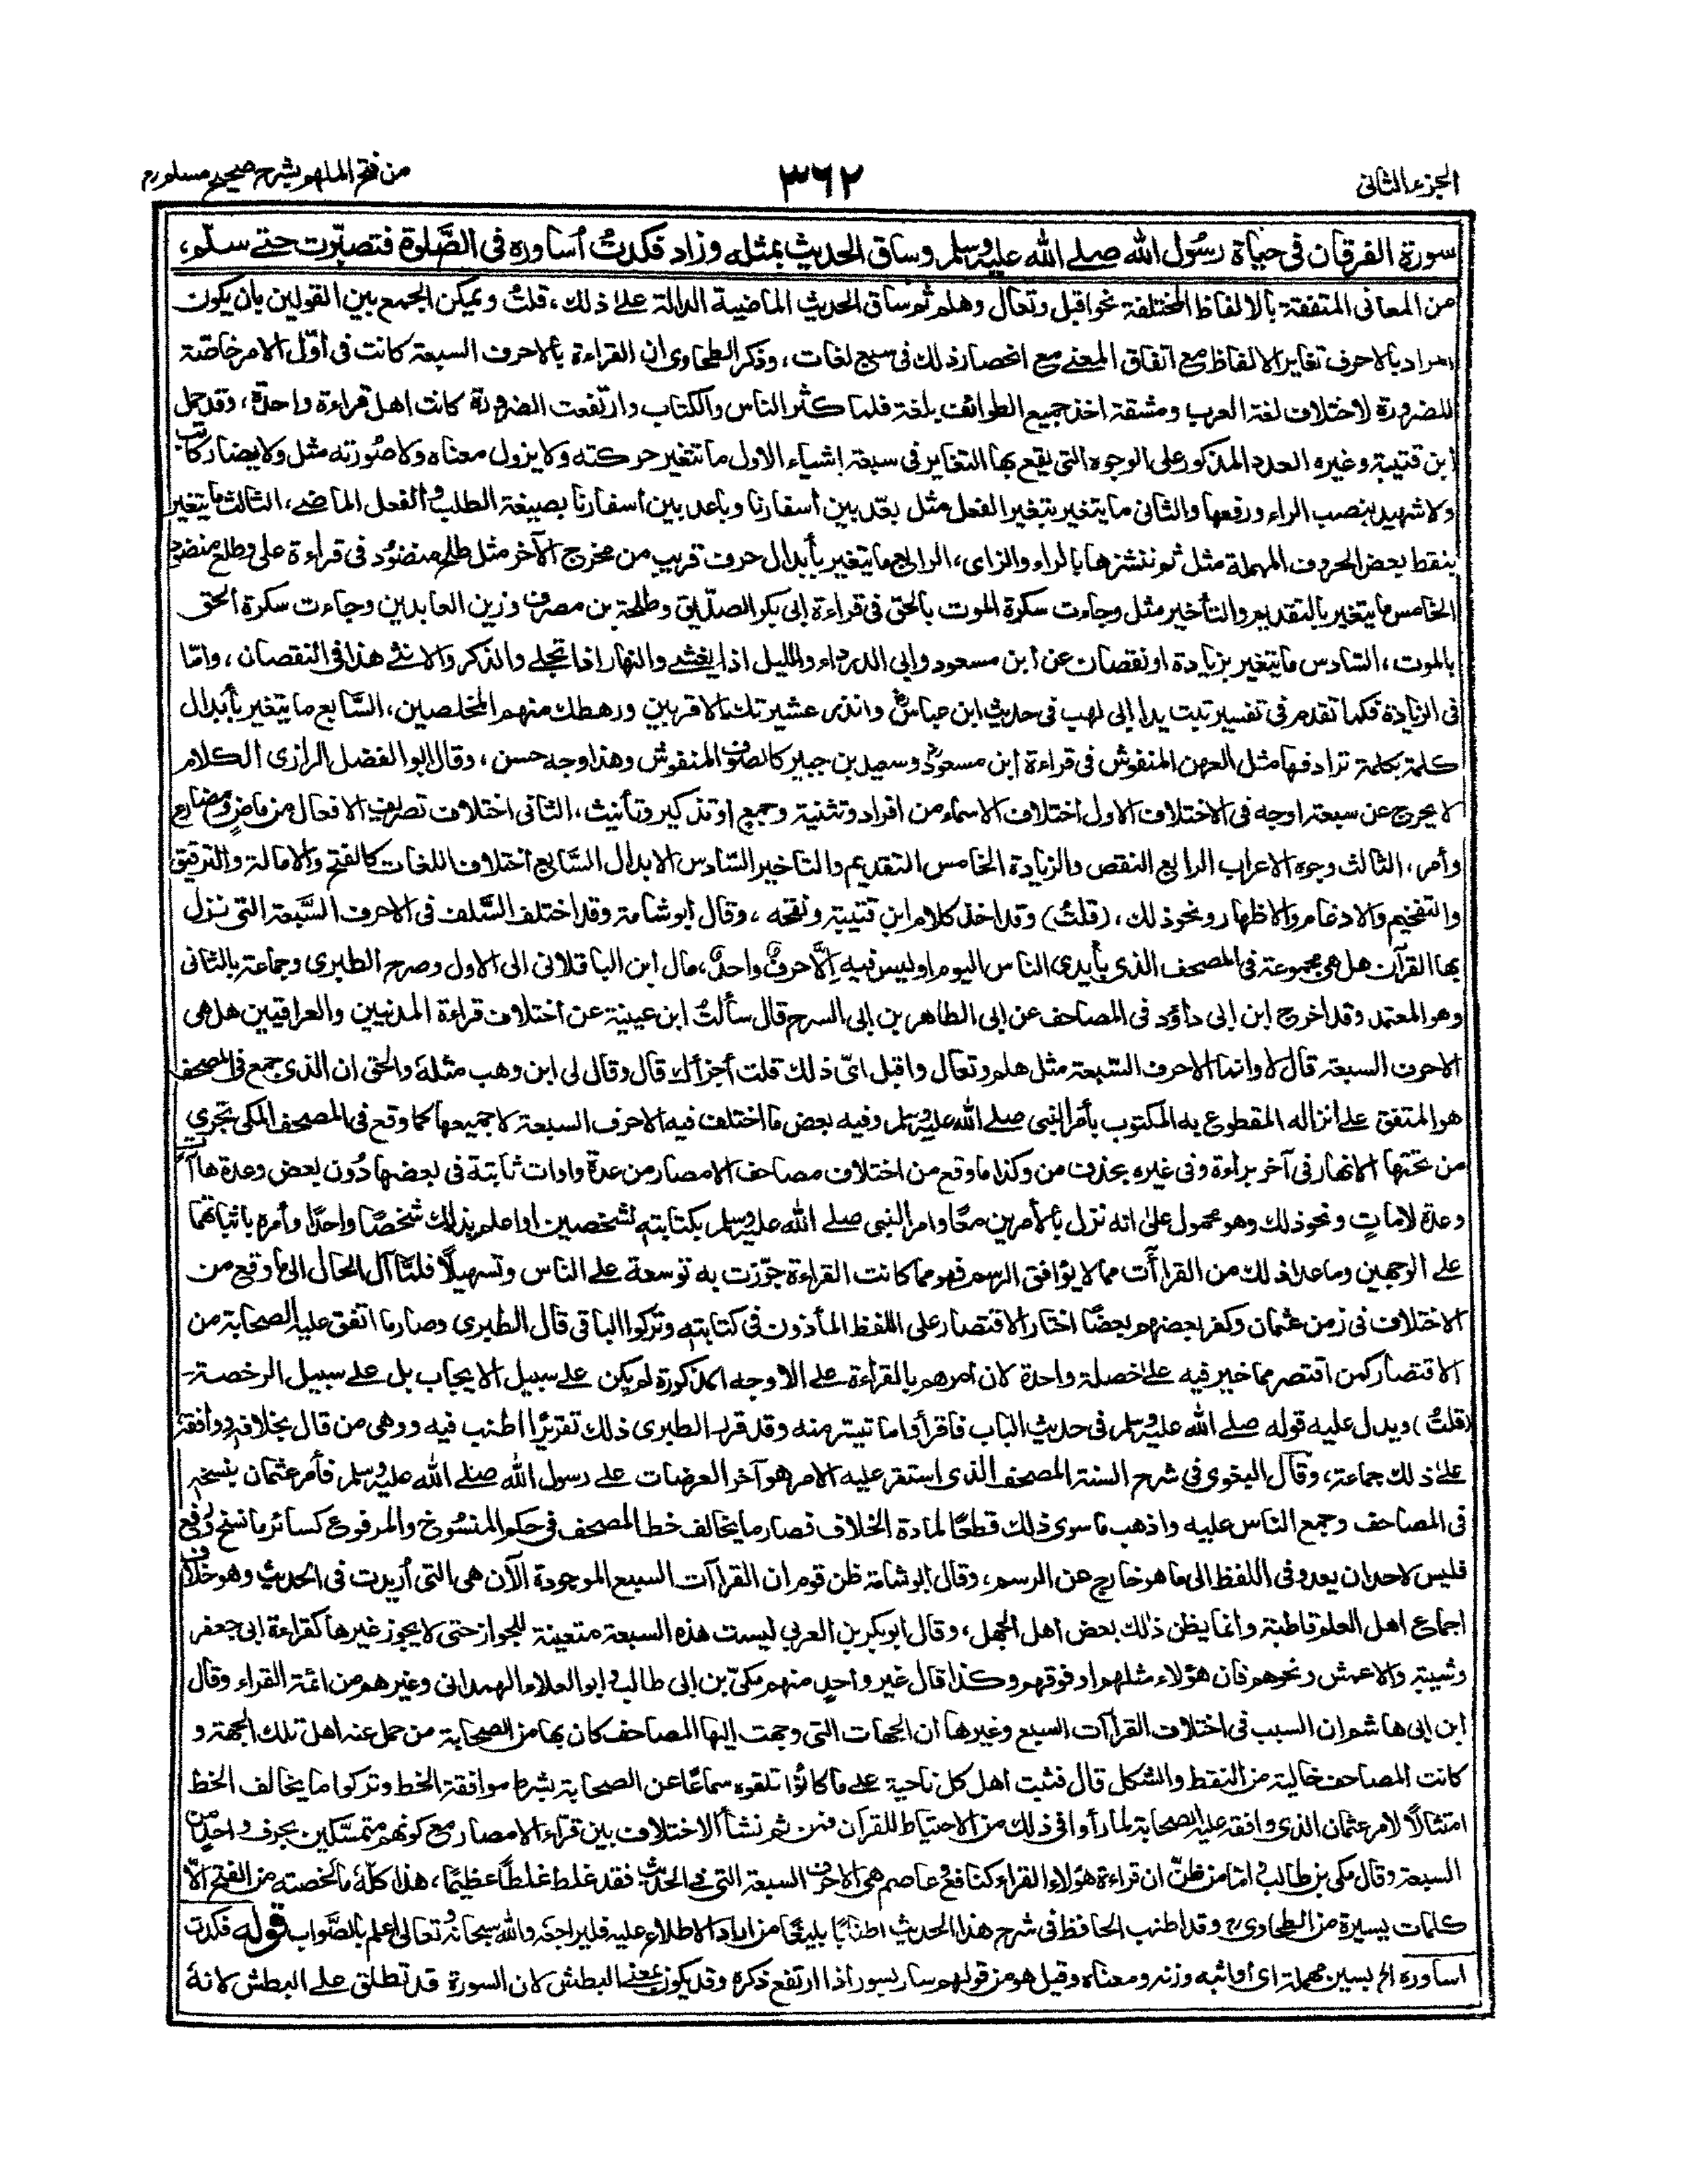 الجزء الثانی
٣٦٢
من فتح الملهم بشرح صحيح مسلم
سورة الفرقان فی حياة رسُول الله صلے الله عليه وسلم وساق الحديث بمثله وزاد فكدتُ اُساوره فی الصَّلوة فتصبّرت حتے سلّم،
من المعانی المتفقة بالالفاظ المختلفة نحو اقبل وتعال وهلم ثم ساق الحديث الماضية الدالة علے ذلك، قلتُ ويمكن الجمع بين القولين بان يكون
المراد بالاحرف تغاير الالفاظ مع اتفاق المعنے مع انحصار ذلك فی سبع لغات، وذكر الطحاوی ان القراءة بالاحرف السبعة كانت فی اوّل الامر خاصّة
للضرورة لاختلاف لغة العرب ومشقة اخذ جميع الطوائف بلغة فلما كثر الناس والكتاب وارتفعت الضرورة كانت اهل قراءة واحدة، وقد حمل
ابن قتيبة وغيره العدد المذكور على الوجوه التی يقع بها التغاير فی سبعة اشياء الاول ما تتغير حركته ولا يزول معناه ولا صُورته مثل ولا يضار كاتب
ولا شهيد بنصب الراء ورفعها والثانی ما يتغير بتغير الفعل مثل بعّد بين أسفارنا وباعد بين أسفارنا بصيغة الطلب والفعل الماضے، الثالث ما يتغير
بنقط بعض الحروف المهملة مثل ثم ننشزها بالراء والزای، الرابع ما يتغير بأبدال حرف قريب من مخرج الآخر مثل طلح منضُود فی قراءة علی وطلع منضود
الخامس ما يتغير بالتقديم والتأخير مثل وجاءت سكرة الموت بالحق فی قراءة ابی بكر الصدّيق وطلحة بن مصرف وزين العابدين وجاءت سكرة الحق
بالموت، السّادس ما يتغير بزيادة او نقصان عن ابن مسعود وابی الدرداء والليل اذا يغشے والنهار اذا تجلے والذكر والانثے هذا فی النقصان، وامّا
فی الزيادة فكما تقدم فی تفسير تبت يدا ابی لهب فی حديث ابن عباس وانذر عشيرتك الاقربين ورهطك منهم المخلصين، السّابع ما يتغير بأبدال
كلمة بكلمة ترادفها مثل العهن المنفوش فی قراءة ابن مسعود وسعيد بن جبير كالصوف المنفوش وهذا وجه حسن، وقال ابو الفضل الرازی الكلام
لا يخرج عن سبعة اوجه فی الاختلاف الاول اختلاف الاسماء من افراد وتثنية وجمع او تذكير وتأنيث، الثانی اختلاف تصريف الافعال من ماضٍ ومضارع
وأمر، الثالث وجوه الاعراب الرابع النقص والزيادة الخامس التقديم والتاخير السّادس الابدال السّابع اختلاف اللغات كالفتح والامالة والترقيق
والتفخيم والادغام والاظهار ونحو ذلك، (قلتُ) وقد اخذ كلام ابن قتيبة ونقحه، وقال ابو شامة وقد اختلف السَّلف فی الاحرف السَّبعة التی نزل
بها القرآن هل هی مجموعة فی المصحف الذی بأيدی الناس اليوم او ليس فيه اِلَّا حرفٌ واحدٌ، مال ابن الباقلانی الی الاول وصرح الطبری وجماعة بالثانی
وهو المعتمد وقد اخرج ابن ابی داؤد فی المصاحف عن ابی الطاهر بن ابی السرح قال سألتُ ابن عيينة عن اختلاف قراءة المدنيين والعراقيين هل هی
الاحرف السبعة قال لا وانما الاحرف السّبعة مثل هلم وتعال واقبل ایّ ذلك قلت أجزأك قال وقال لی ابن وهب مثلهٗ والحق ان الذی جمع فی المصحف
هو المتفق علے انزاله المقطوع به المكتوب بأمر النبی صلے الله عليه وسلم وفيه بعض ما اختلف فيه الاحرف السبعة لا جميعها كما وقع فی المصحف المكی تجری
من تحتها الانهار فی آخر براءة وفی غيره بحذف من وكذا ما وقع من اختلاف مصاحف الامصار من عدة واوات ثابتة فی بعضها دُون بعض وعدة هاآت
وعدة لاماتٍ ونحو ذلك وهو محمول علیٰ انه نزل بالأمرين معًا وامر النبی صلے الله عليه وسلم بكتابته لشخصين او اعلم بذلك شخصًا واحدًا وأمره باثباتهما
علے الوجهين وما عدا ذلك من القراأت مما لا يوافق الرسم فهو مما كانت القراءة جوّزت به توسعة علے الناس وتسهيلًا فلمّا آل الحال الی ما وقع من
الاختلاف فی زمن عثمان وكفر بعضهم بعضًا اختار الاقتصار علی اللفظ المأذون فی كتابته وتركوا الباقی قال الطبری وصار ما اتفق عليه الصحابة من
الاقتصار كمن اقتصر مما خير فيه علےٰ خصلة واحدة لان امرهم بالقراءة علے الاوجه المذكورة لم يكن علے سبيل الايجاب بل علے سبيل الرخصة
(قلتُ) ويدل عليه قوله صلے الله عليه وسلم فی حديث الباب فاقرأوا ما تيسّر منه وقد قرر الطبری ذلك تقريرًا اطنب فيه ووهی من قال بخلافه ووافقه
علےٰ ذلك جماعة، وقال البغوی فی شرح السنة المصحف الذی استقر عليه الامر هو آخر العرضات علے رسول الله صلے الله عليه وسلم فأمر عثمان بنسخه
فی المصاحف وجمع الناس عليه واذهب ما سوی ذلك قطعًا لمادة الخلاف فصار ما يخالف خط المصحف فی حكم المنسُوخ والمرفوع كسائر ما نسخ ورُفع
فليس لاحد ان يعدو فی اللفظ الی ما هو خارج عن الرسم، وقال ابو شامة ظن قوم ان القراآت السبع الموجودة الآن هی التی أريدت فی الحديث وهو خلاف
اجماع اهل العلم قاطبة وانما يظن ذلك بعض اهل الجهل، وقال ابو بكر بن العربی ليست هذه السبعة متعينة للجواز حتی لا يجوز غيرها كقراءة ابی جعفر
وشيبة والاعمش ونحوهم فان هؤلاء مثلهم او فوقهم وكذا قال غير واحدٍ منهم مكیّ بن ابی طالب وابو العلاء الهمدانی وغيرهم من ائمة القراء وقال
ابن ابی هاشم ان السبب فی اختلاف القراآت السبع وغيرها ان الجهات التی وجهت اليها المصاحف كان بها من الصحابة من حمل عنه اهل تلك الجهة و
كانت المصاحف خالية من النقط والشكل قال فثبت اهل كل ناحية علے ما كانُوا تلقوه سماعًا عن الصحابة بشرط موافقة الخط وتركوا ما يخالف الخط
امتثالًا لامر عثمان الذی وافقه عليه الصحابة لما رأوا فی ذلك من الاحتياط للقرآن فمن ثم نشأ الاختلاف بين قرّاء الامصار مع كونهم متمسّكين بحرف واحد من
السبعة وقال مكی بن طالب واما من ظنّ ان قراءة هؤلاء القراء كنافع وعاصم هی الاحرف السبعة التی فی الحديث فقد غلط غلطًا عظيمًا، هذا كلّه ما لخصته من الفتح الّا
كلمات يسيرة من الطحاوی وقد اطنب الحافظ فی شرح هذا الحديث اطنابًا بليغًا من اراد الاطلاع عليه فليراجعه والله سبحانهٗ وتعالی اعلم بالصَّواب قوله فكدت
اساوره الخ بسين مهملة ای أواثبه وزنه ومعناه وقيل هو من قولهم سار يسور اذا ارتفع ذكره وقد يكون بمعنے البطش لان السورة قد تطلق علے البطش لانهٗ